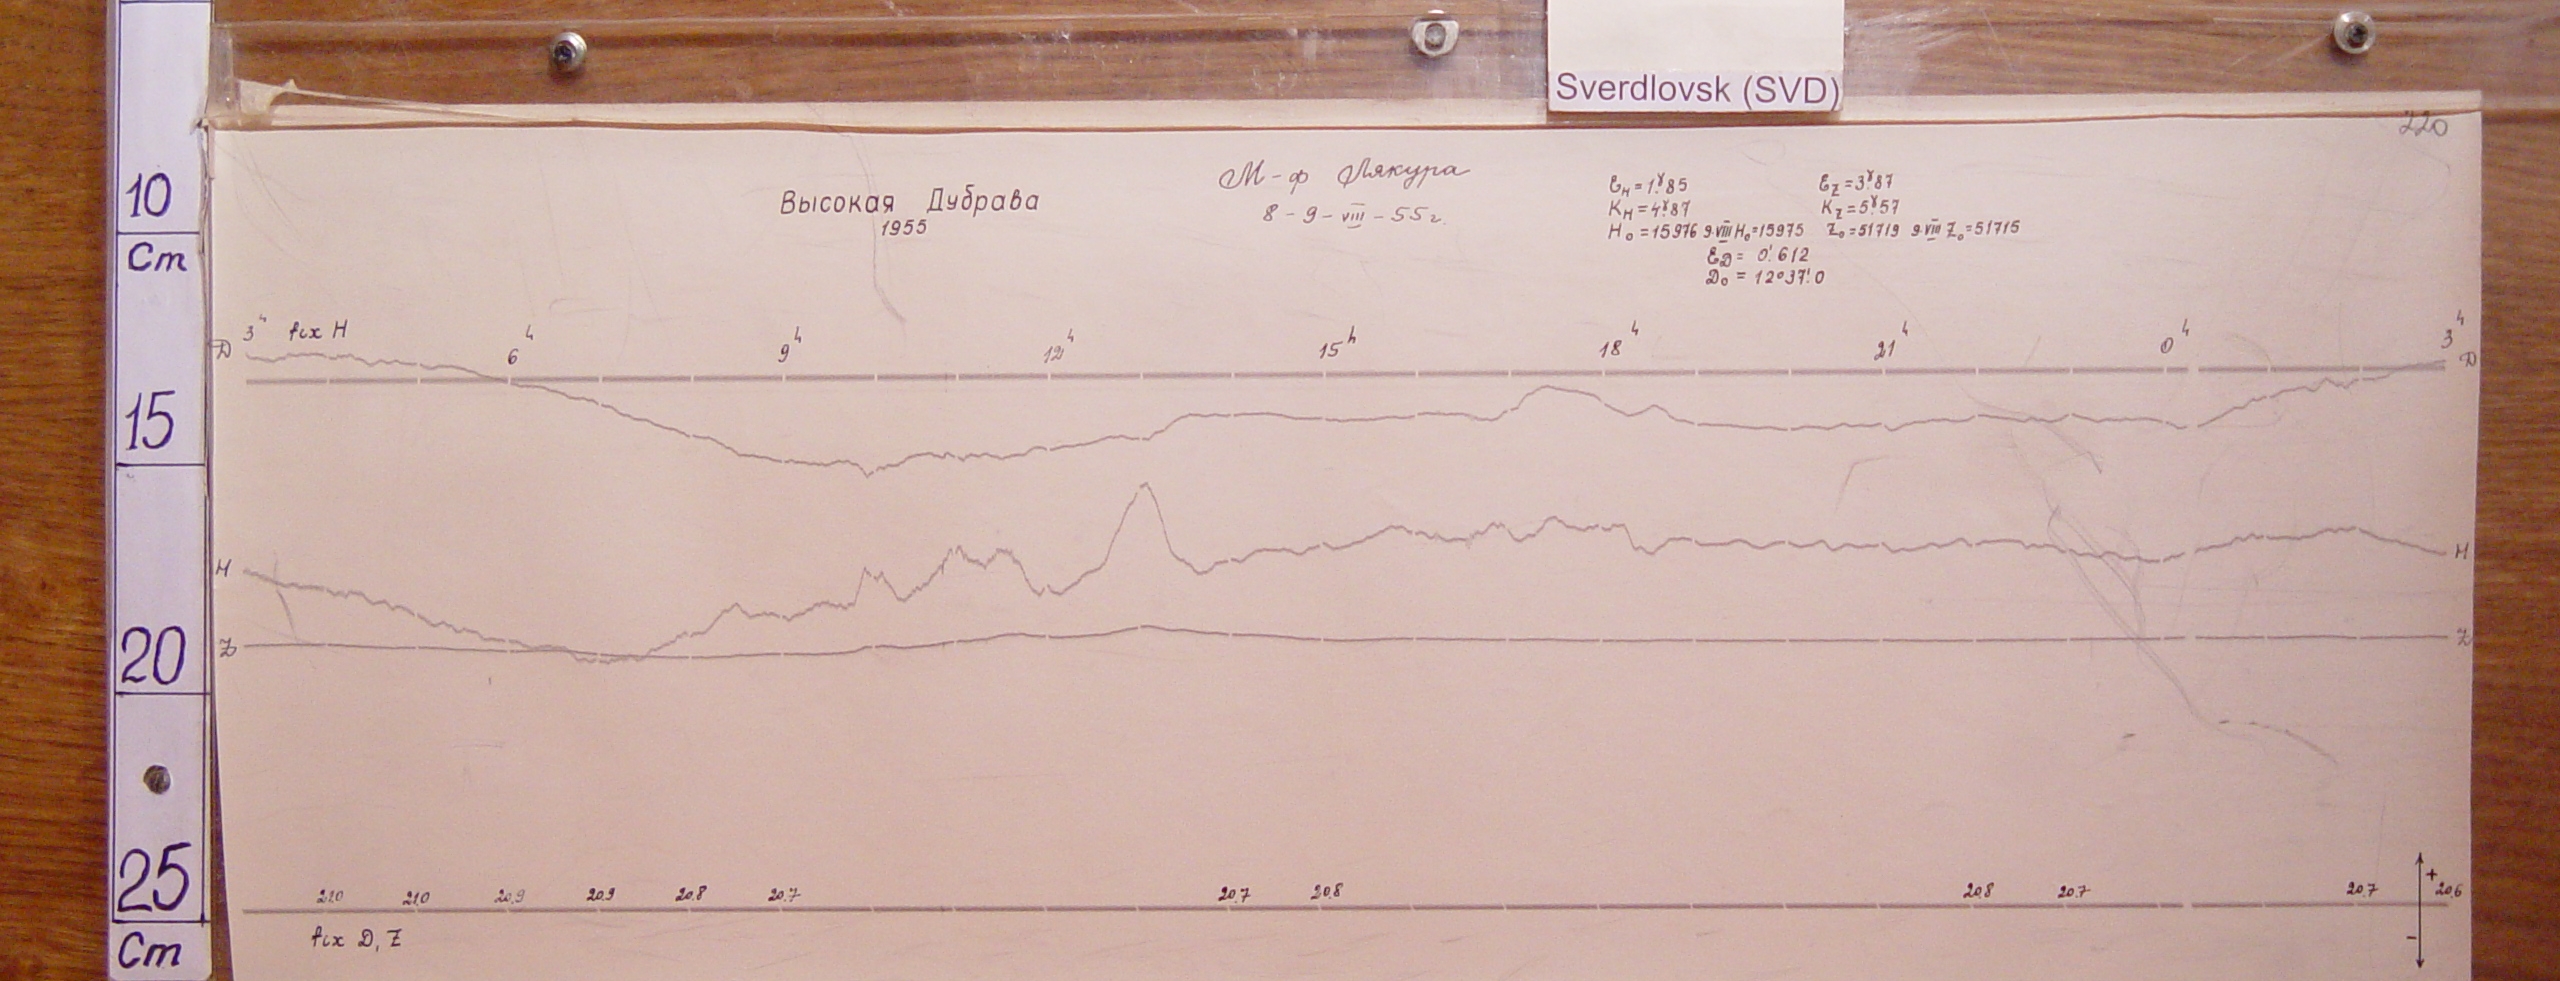 Sverdlovsk (SVD)
220
10
Cm
15
20
25
Cm
Высокая Дубрава
1955
М-ф Лякура
8 - 9 - VIII - 55 г.
Ɛн = 1.ˠ85 Ɛz = 3.ˠ87
Kн = 4.ˠ87 Kz = 5.ˠ57
H₀ = 15976 9.VIII H₀=15975 Z₀ = 51719 9.VIII Z₀ = 51715
ƐD = 0.′612
D₀ = 12°37.′0
3ʰ fix H 6ʰ 9ʰ 12ʰ 15ʰ 18ʰ 21ʰ 0ʰ 3ʰ
D D
H H
Z Z
21.0 21.0 20.9 20.9 20.8 20.7 20.7 20.8 20.8 20.7 20.7 20.6
+
fix D, Z
-